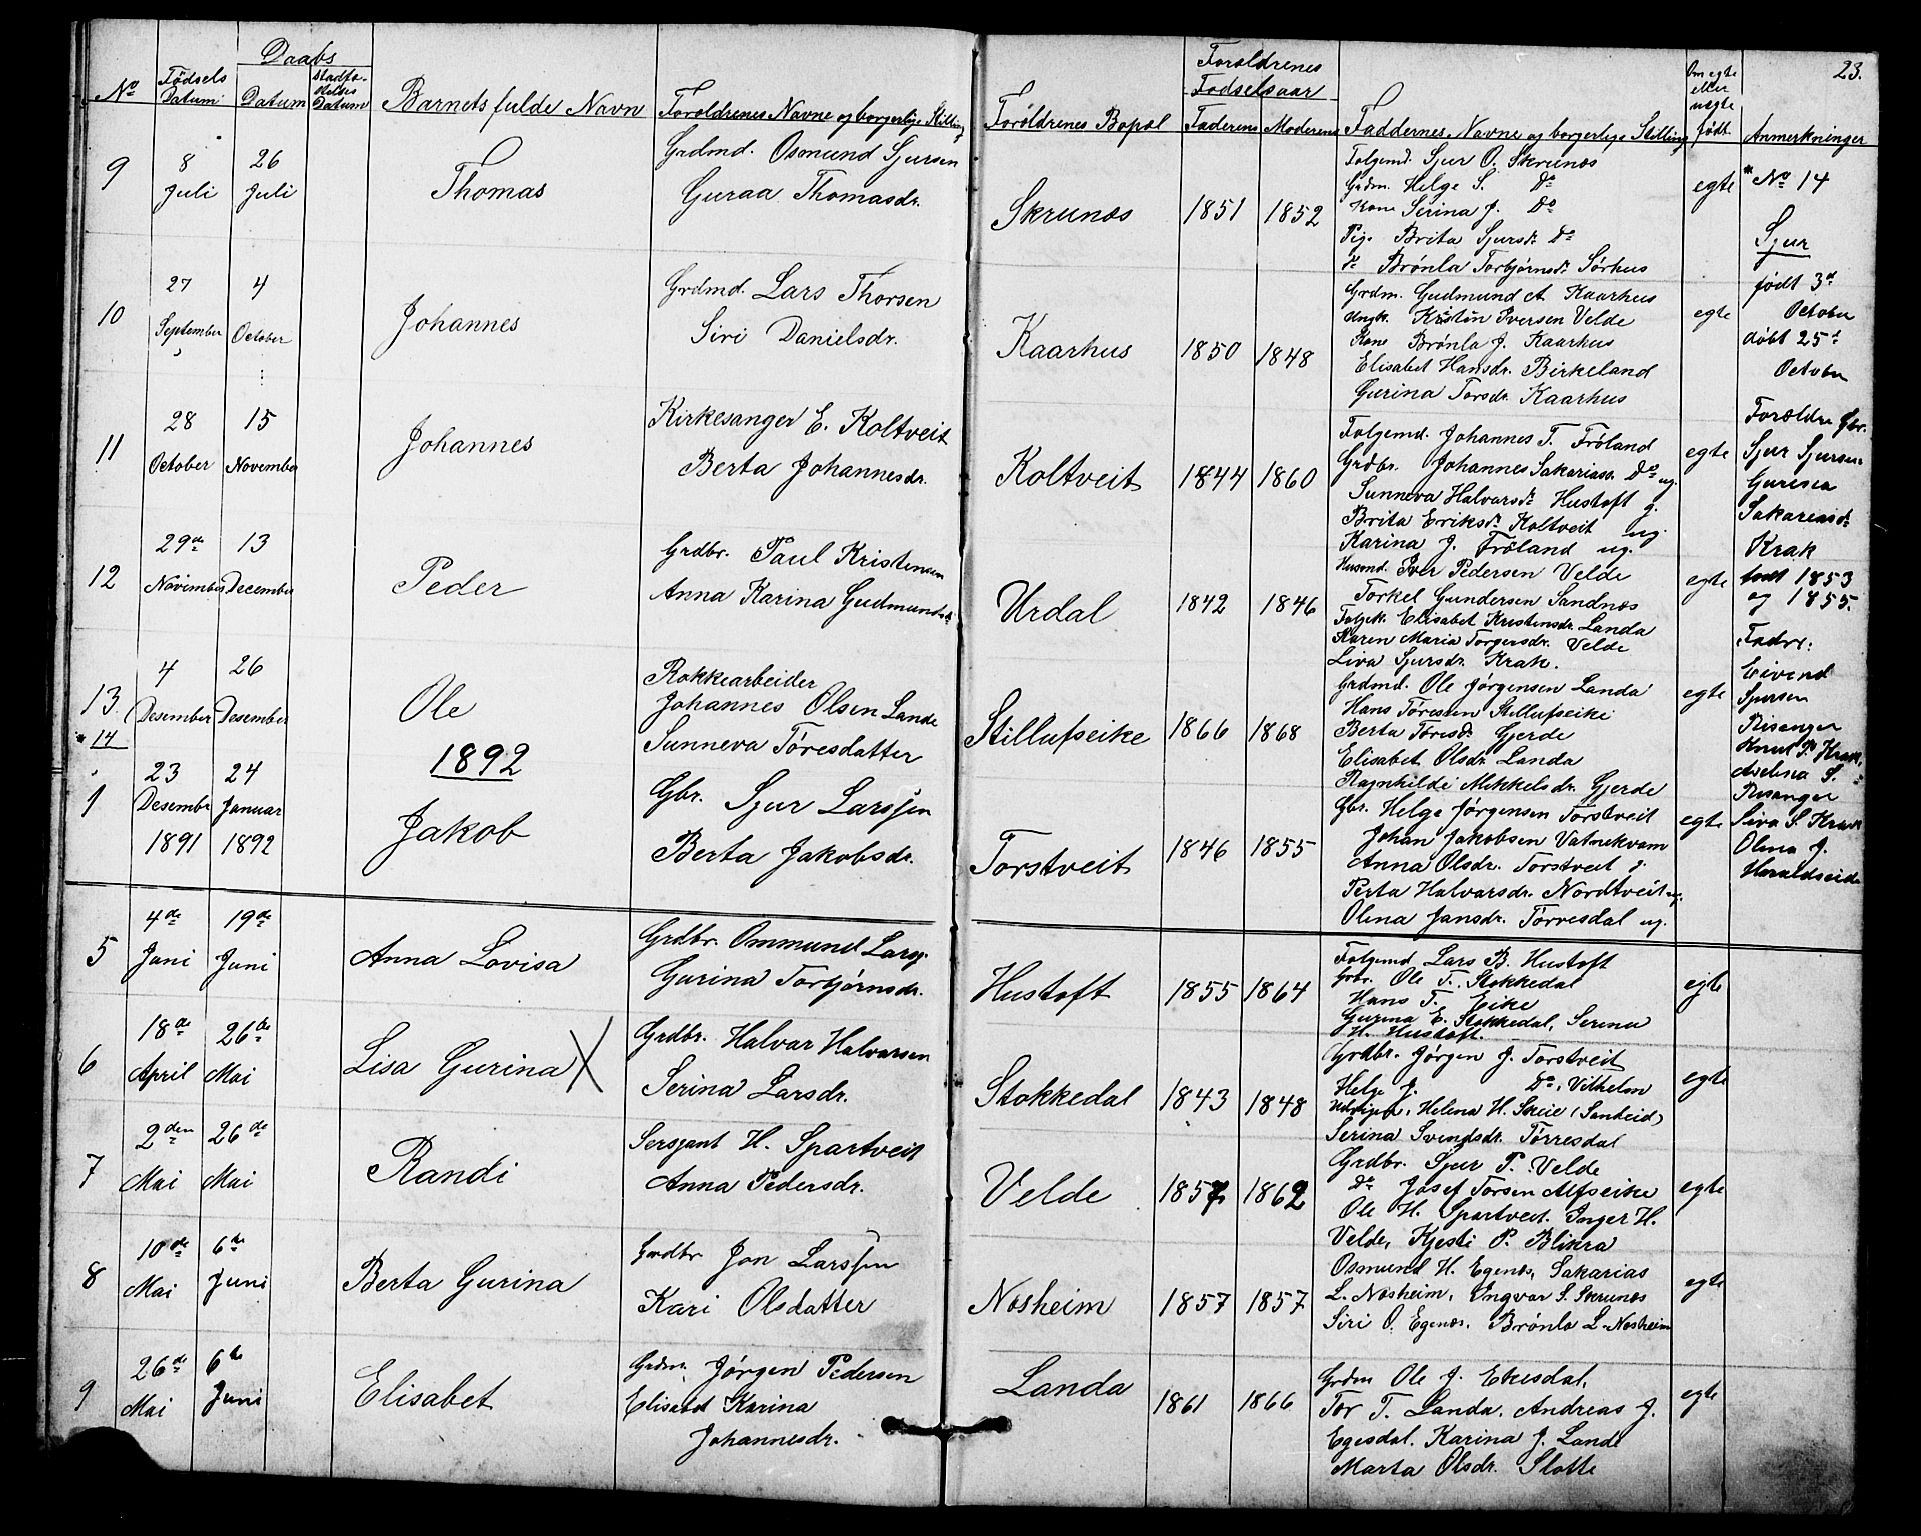 23.
No
Fødsels Datum
Daabs
Datum
Stadfæ-
stelses
Datum
Barnets fulde Navn
Forældrenes Navne og borgerlige Stilling
Forældrenes Bopæl
Forældrenes
Fødselsaar
Faderens Moderens
Faddernes Navne og borgerlige Stilling
Om egte
eller
uegte
født
Anmerkninger
9
8
Juli
26
Juli
Thomas
Grdmd. Osmund Sjursen
Guraa Thomasdr.
Skrunæs
1851 1852
Folgemd. Sjur O. Skrunæs
Grdm. Helge S. Do
Kone Serina J. Do
Pige Brita Sjursdr. Do
do Brønla Torbjørnsdr. Sørhus
egte
10
27
September
4
October
Johannes
Grdmd. Lars Thorsen
Siri Danielsdr.
Kaarhus
1850 1848
Grdm. Gudmund A. Kaarhus
Ungk. Kristen Iversen Velde
Kone Brønla J. Kaarhus
Elisabet Hansdr. Birkeland
Gurina Torsdr. Kaarhus
egte
11
28
October
15
November
Johannes
Kirkesanger E. Koltveit
Berta Johannesdr.
Koltveit
1844 1860
Folgemd. Johannes T. Frøland
Grdbr. Johannes Sakariass. Do ug.
Sunneva Halvarsdr. Hustoft g.
Brita Eriksdr. Koltveit ug.
Karina J. Frøland ug.
egte
12
29de
November
13
December
Peder
Grdbr. Paul Kristensen
Anna Karina Gudmundsdr.
Urdal
1842 1846
Husmd. Iver Pedersen Velde
Torkel Gundersen Sandnæs
Folgek. Elisabet Kristensdr. Landa
Karen Maria Torgersdr. Velde
Liva Sjursdr. Krak.
egte
13
4
Desember
26
Desember
Ole
Rokkearbeider
Johannes Olsen Lande
Sunneva Tøresdatter
Stillufseike
1866 1868
Grdmd. Ole Jørgensen Landa
Hans Tøressen Stillufseike
Berta Tøresdr. Gjerde
Elisabet Olsdr. Landa
Ragnhilde Mikkelsdr. Gjerde
egte
* 14
1892
1
23
Desember
1891
24
Januar
1892
Jakob
Gbr. Sjur Larssen
Berta Jakobsdr.
Torstveit
1846 1855
Gbr. Helge Jørgensen Torstveit
Johan Jakobsen Vatnekvam
Anna Olsdr. Torstveit g.
Berta Halvarsdr. Nordtveit ug.
Olina Jansdr. Tørresdal ug.
egte
* No 14
Sjur
født 3d
October
døbt 25d
October
Forældre Gbr.
Sjur Sjursen
Gurina
Sakariasdr.
Krak
født 1853
og 1855.
Fadre:
Eivind
Sjursen
Risanger
Knut P. Krak,
Avelina S.
Risanger
Liva S. Krak
Olina J.
Haraldseide
5
4de
Juni
19de
Juni
Anna Lovisa
Grdbr. Ommund Larss.
Gurina Torbjørnsdr.
Hustoft
1855 1864
Folgemd Lars B. Hustoft
Grbr. Ole T. Stokkedal
Hans T. Eike
Gurina E. Stokkedal, Serina
H. Hustoft.
egte
6
18de
April
26de
Mai
Lisa Gurina X
Grdbr. Halvar Halvarsen
Serina Larsdr.
Stokkedal
1843 1848
Grdbr. Jørgen J. Torstveit
Helge J. Do, Vilhelm
Helena H. Skeie (Sandeid)
Serina Svendsdr. Tørresdal
egte
7
2den
Mai
26de
Mai
Randi
Sersjant H. Spartveit
Anna Pedersdr.
Velde
1857 1862
Grdbr. Sjur P. Velde
Do Josef Torsen Alfseike
Ole H. Spartveit. Inger H.
Velde, Kjesti P. Blikra
egte
8
10de
Mai
6de
Juni
Berta Gurina
Grdbr Jon Larssen
Kari Olsdatter
Næsheim
1857 1857
Osmund H. Egenæs, Sakarias
L. Næsheim, Ingvar S. Skrunæs
Siri O. Egenæs, Brønla L. Næsheim
egte
9
26de
Mai
6de
Juni
Elisabet
Grdm. Jørgen Pedersen
Elisabet Karina
Johannesdr.
Landa
1861 1866
Grdm Ole J. Ekesdal,
Tor T. Landa, Andreas J.
Egesdal. Karina J. Lande
Marta Olsdr. Slotte
egte